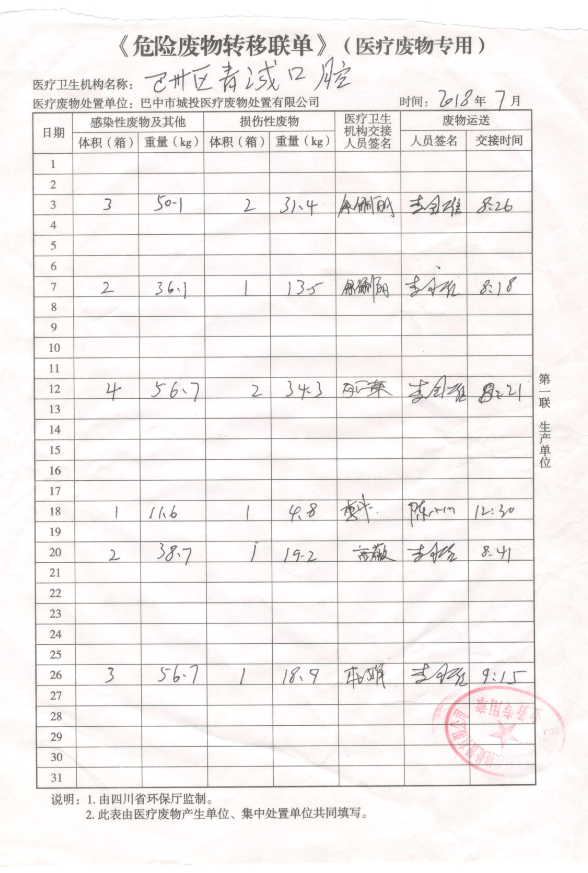 《危险废物转移联单》（医疗废物专用）
医疗卫生机构名称：巴州区青诚口腔
医疗废物处置单位：巴中市城投医疗废物处置有限公司 时间：2018年7月
日期 感染性废物及其他 损伤性废物 医疗卫生机构交接人员签名 废物运送
体积（箱） 重量（kg） 体积（箱） 重量（kg） 人员签名 交接时间
1
2
3 3 50.1 2 31.4 8:26
4
5
6
7 2 36.1 1 13.5 8:18
8
9
10
11
12 4 56.7 2 34.3 8:21
13
14
15
16
17
18 1 11.6 1 4.8 12:30
19
20 2 38.7 1 19.2 8:41
21
22
23
24
25
26 3 56.7 1 18.9 9:15
27
28
29
30
31
第一联 生产单位
业务专用章
说明：1. 由四川省环保厅监制。
2. 此表由医疗废物产生单位、集中处置单位共同填写。